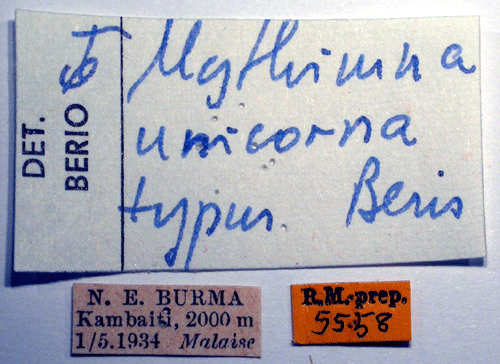 DET.
BERIO
Mythimna
unicorna
typus. Berio
N. E. BURMA
Kambaiti, 2000 m
1/5.1934 Malaise
R.M.-prep.
5558